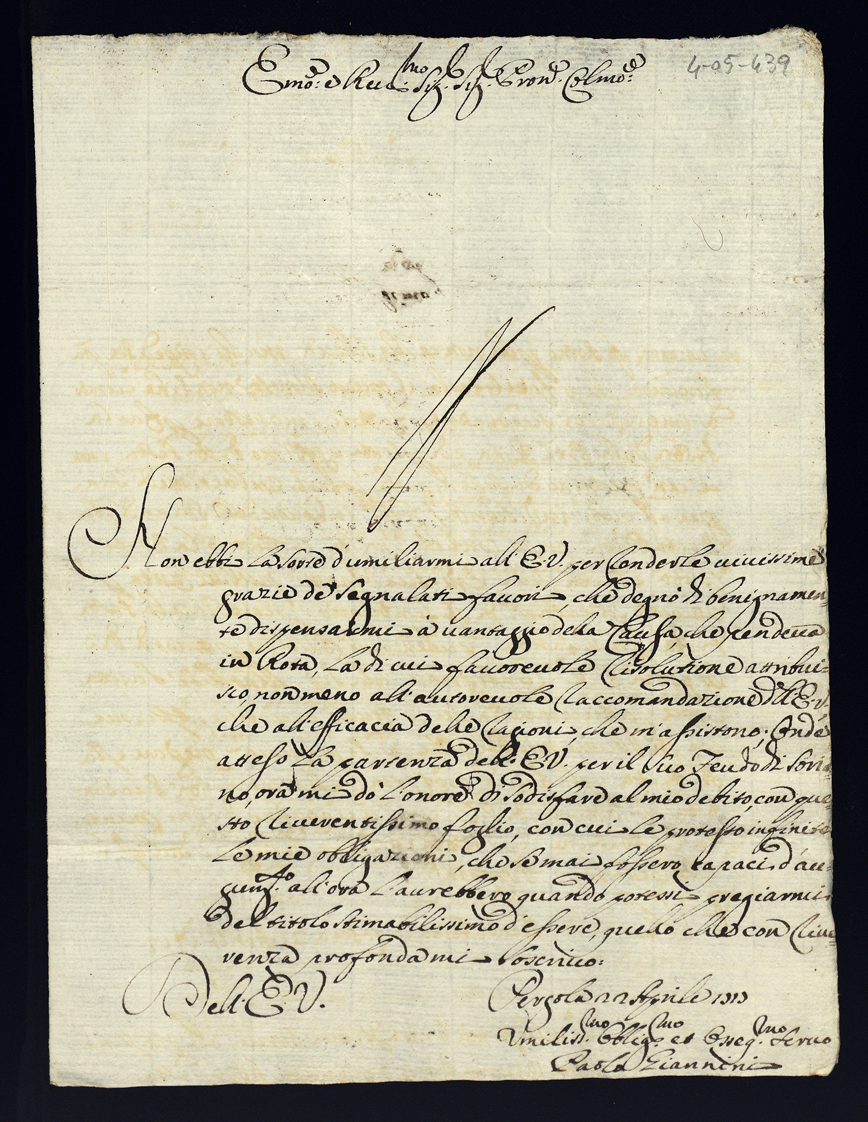 4-05-439
Emo: e Reumo Sig. Sig. Pron. Colmo:
Non ebbi la sorte d'umiliarmi all'E.V. per renderle uiuissime
grazie de segnalati fauori, che degnò di benignamen-
te dispensarmi à uantaggio dela Causa, che pendeua
in Rota, la di cui fauoreuole risolutione attribui-
sco non meno all'autoreuole raccomandazione dell'E.V.
che all'efficacia delle ragioni, che m'assistono; Onde
atteso la partenza dell'E.V. per il suo Feudo di Soria-
no, ora mi dò l'onore di sodisfare al mio debito, con que-
sto riuerentissimo foglio, con cui le protesto infinite
le mie obbligazioni, che se mai fossero capaci d'au-
gum.to all'ora l'aurebbero quando potessi pregiarmi
del titolo stimabilissimo d'essere, quello che con riue-
renza profonda mi soscriuo:
Dell'E.V.
Pergola 22 Aprile
Vmiliss.mo Obblig.mo et Osseq.mo Seruo
Paolo Giannini